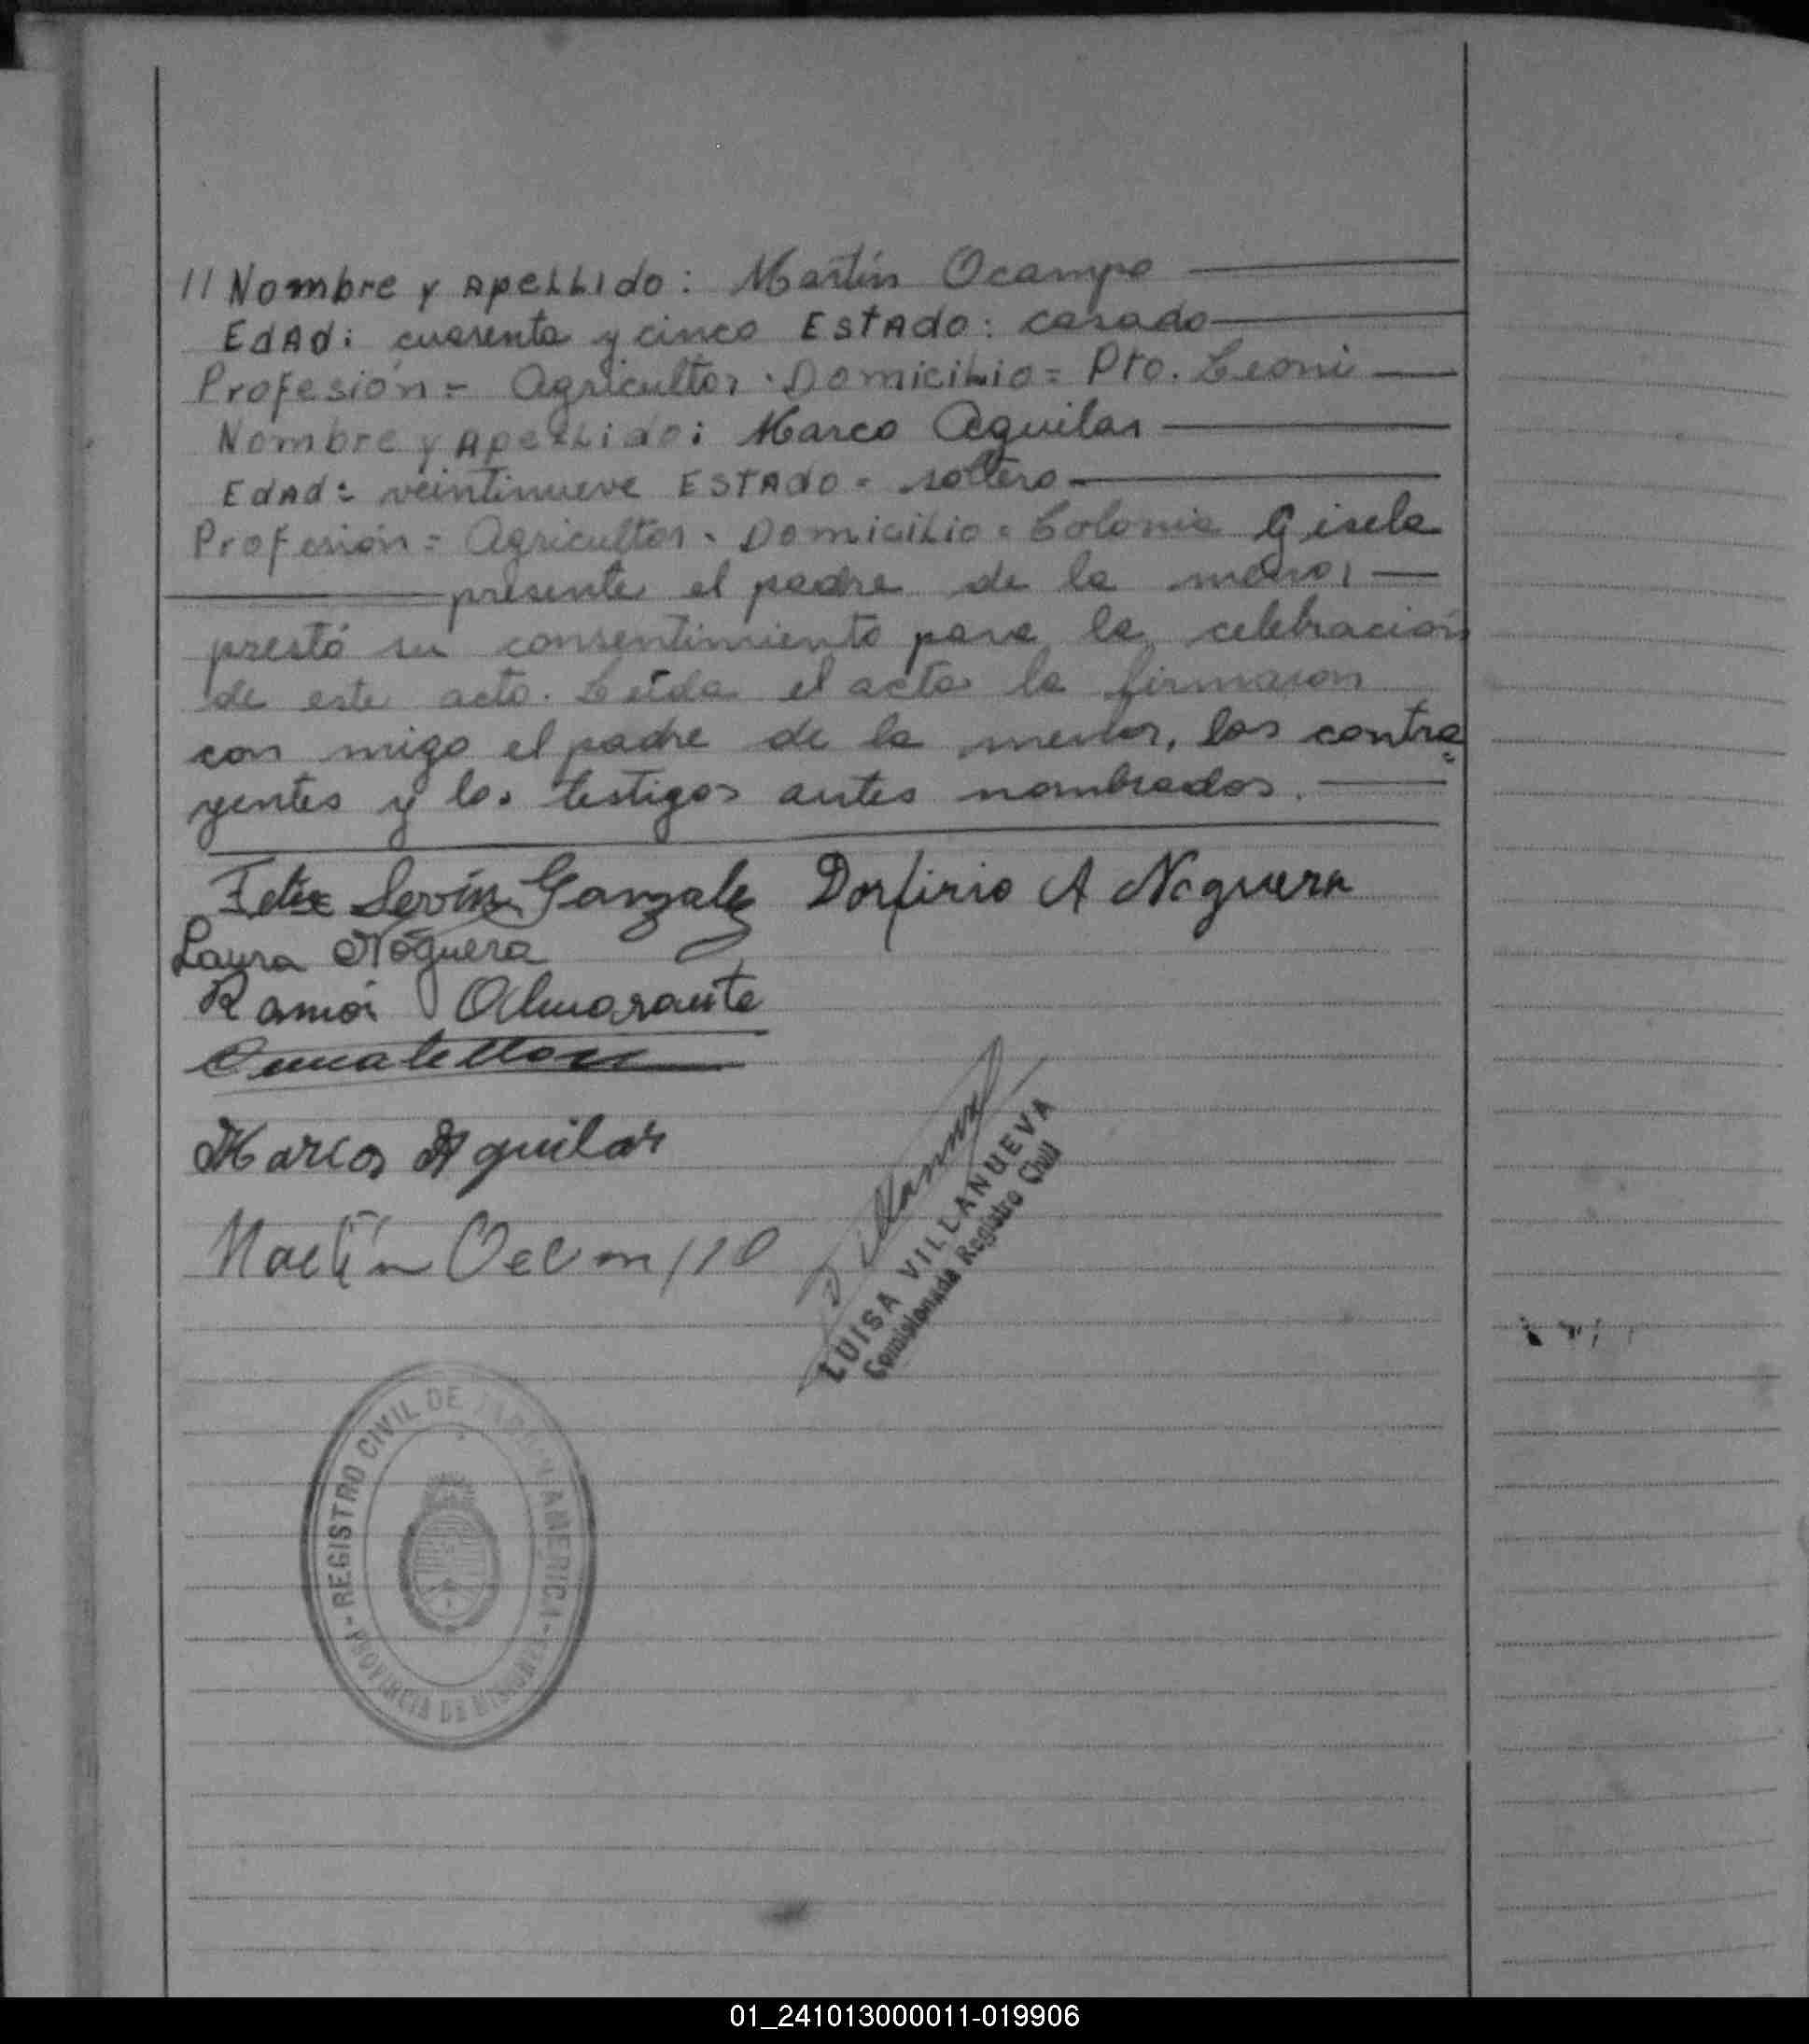 // Nombre y Apellido: Martín Ocampo
Edad: cuarenta y cinco Estado: casado
Profesión = Agricultor. Domicilio = Pto. Leoni
Nombre y Apellido: Marco Aguilar
Edad: veintinueve Estado = soltero
Profesión = Agricultor. Domicilio = Colonia Gisela
presente el padre de la menor
prestó su consentimiento para la celebración
de este acto. Leída el acta la firmaron
con migo el padre de la menor, los contra=
yentes y los testigos antes nombrados.
Felix Servín Gonzalez Porfirio A Noguera
Laura Noguera
Ramón Almarante
Marcos Aguilar
Martín Ocampo
LUISA VILLANUEVA
Comisionada Registro Civil
- REGISTRO CIVIL DE AMERICA -
PROVINCIA DE MISIONES
01_241013000011-019906